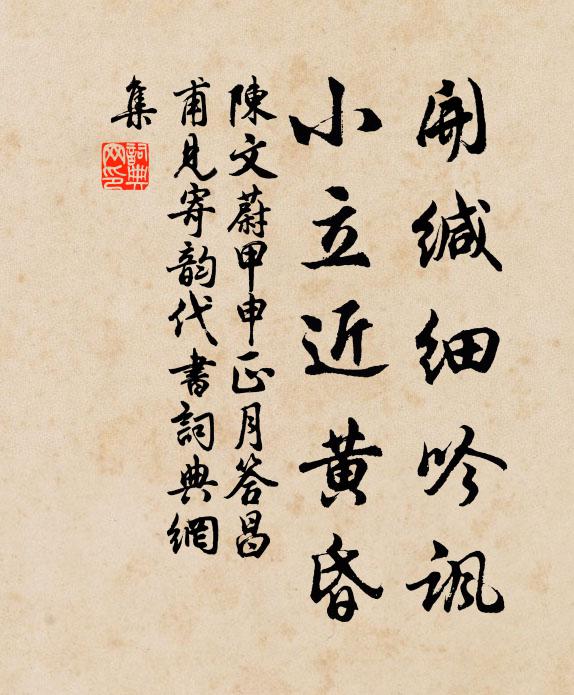 開緘細吟諷
小立近黄昏
陳文蔚甲申正月答昌
甫見寄韵代書詞典網
集
詞典
网印